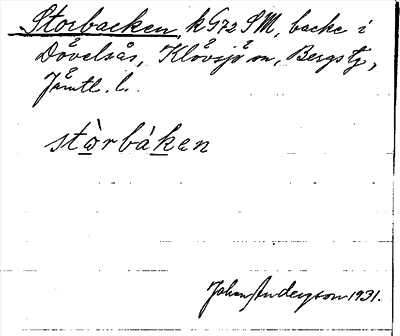 Storbacken, k G72 SM, backe i
Dövelsås, Klövsjö sn, Bergs tg,
Jämtl. l.
stòrbáken
Johan Anderzson 1931.